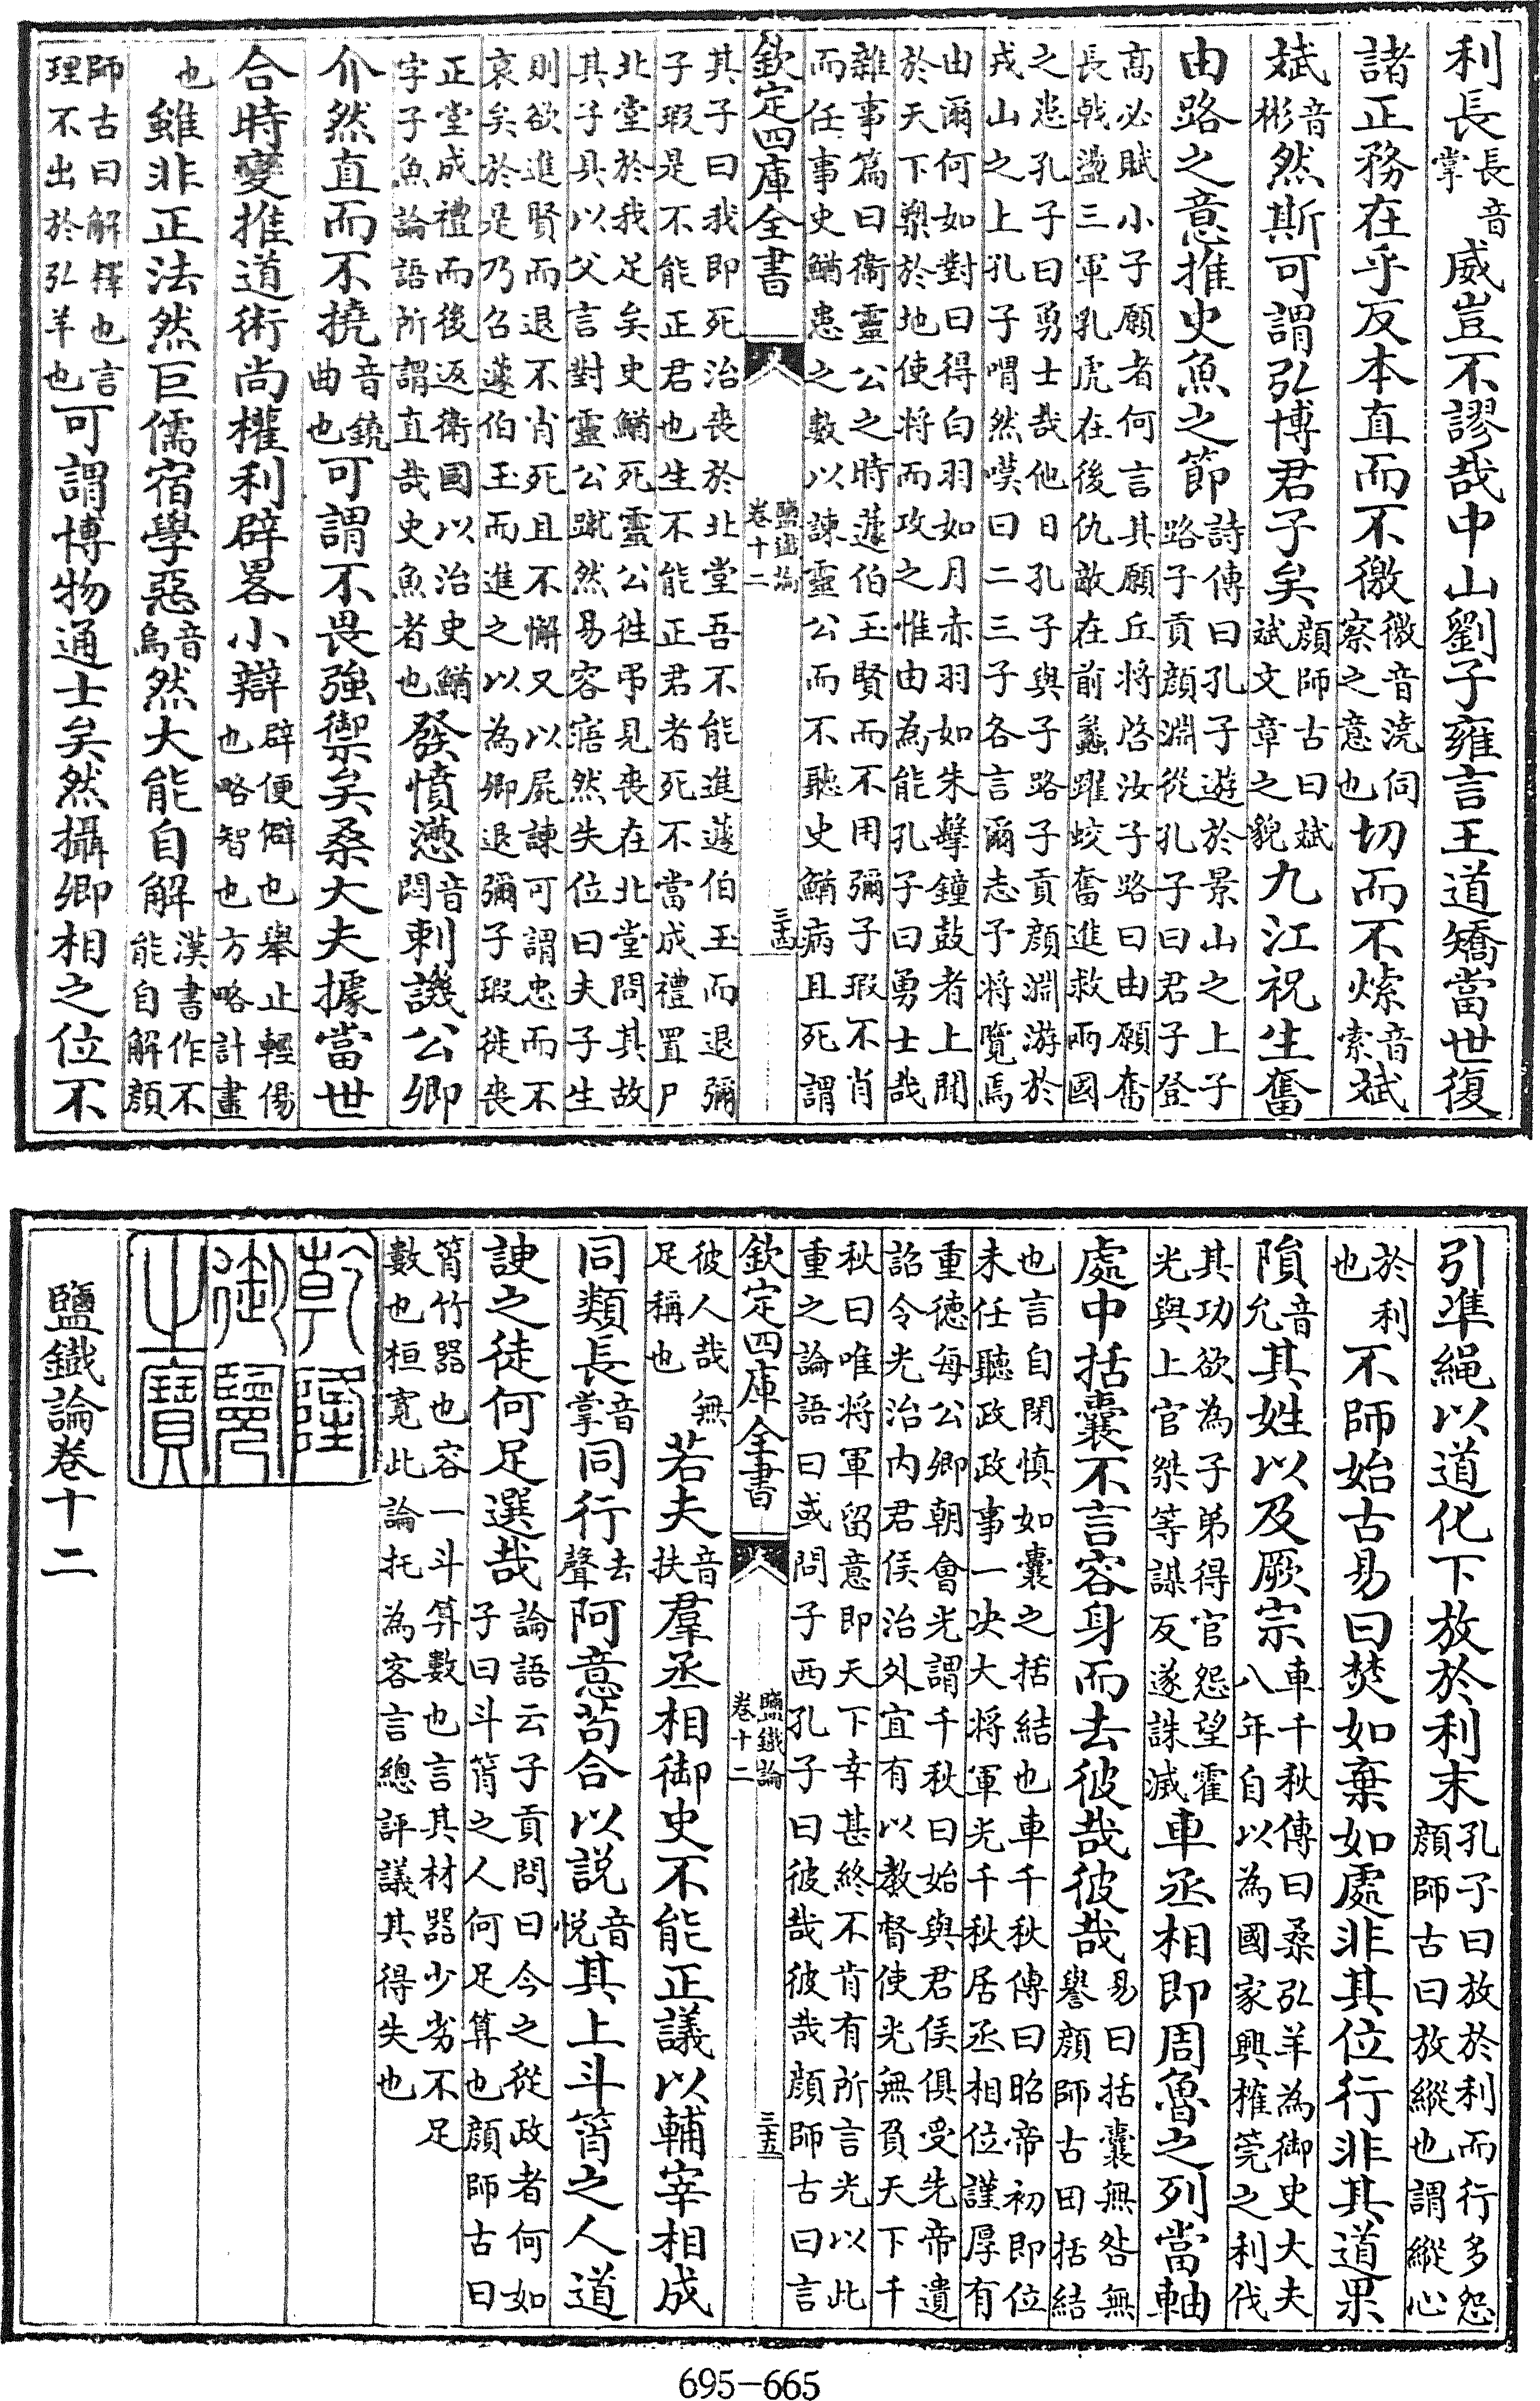 利長長音掌威豈不謬哉中山劉子雍言王道矯當世復
諸正務在乎反本直而不徼徼音澆伺察之意也切而不㷌音索斌
斌音彬然斯可謂弘博君子矣顔師古曰斌斌文章之貌九江祝生奮
由路之意推史魚之節詩傳曰孔子遊於景山之上子路子貢顔淵從孔子曰君子登
高必賦小子願者何言其願丘將啓汝子路曰由願奮
長戟盪三軍乳虎在後仇敵在前蠡躍蛟奮進救兩國
之患孔子曰勇士哉他日孔子與子路子貢顔淵游於
戎山之上孔子喟然嘆曰二三子各言爾志予將覽焉
由爾何如對曰得白羽如月赤羽如朱擊鐘鼓者上聞
於天下槊於地使將而攻之惟由為能孔子曰勇士哉
雜事篇曰衞靈公之時蘧伯玉賢而不用彌子瑕不肖
而任事史鰌患之數以諫靈公而不聽史鰌病且死謂
欽定四庫全書
鹽鐵論
卷十二
三四
其子曰我即死治喪於北堂吾不能進蘧伯玉而退彌
子瑕是不能正君也生不能正君者死不當成禮置尸
北堂於我足矣史鰌死靈公往弔見喪在北堂問其故
其子具以父言對靈公蹴然易容寤然失位曰夫子生
則欲進賢而退不肖死且不懈又以屍諫可謂忠而不
哀矣於是乃召蘧伯玉而進之以為卿退彌子瑕徙喪
正堂成禮而後返衛國以治史鰌字子魚論語所謂直哉史魚者也發憤懣音悶刺譏公卿
介然直而不撓音鐃曲也可謂不畏強禦矣桑大夫據當世
合時變推道術尚權利辟畧小辯辟便僻也舉止輕傷也略智也方略計畫
也雖非正法然巨儒宿學惡音烏然大能自解漢書作不能自解顔
師古曰解釋也言理不出於弘羊也可謂博物通士矣然攝卿相之位不
引準繩以道化下放於利末孔子曰放於利而行多怨顔師古曰放縱也謂縱心
於利也不師始古易曰焚如棄如處非其位行非其道果
隕音允其姓以及厥宗車千秋傳曰桑弘羊為御史大夫八年自以為國家興榷筦之利伐
其功欲為子弟得官怨望霍光與上官桀等謀反遂誅滅車丞相即周魯之列當軸
處中括囊不言容身而去彼哉彼哉易曰括囊無咎無譽顔師古曰括結
也言自閉慎如囊之括結也車千秋傳曰昭帝初即位
未任聽政政事一決大將軍光千秋居丞相位謹厚有
重德每公卿朝會光謂千秋曰始與君侯俱受先帝遺
詔今光治内君侯治外宜有以教督使光無負天下千
秋曰唯將軍留意即天下幸甚終不肯有所言光以此
重之論語曰或問子西孔子曰彼哉彼哉顔師古曰言
欽定四庫全書
鹽鐵論
卷十二
三五
彼人哉無足稱也若夫音扶羣丞相御史不能正議以輔宰相成
同類長音掌同行去聲阿意苟合以説音悦其上斗筲之人道
諛之徒何足選哉論語云子貢問曰今之從政者何如子曰斗筲之人何足算也顔師古曰
筲竹器也容一斗算數也言其材器少劣不足
數也桓寛此論托為客言總評議其得失也
乾隆
御覽
之寶
鹽鐵論卷十二
695-665